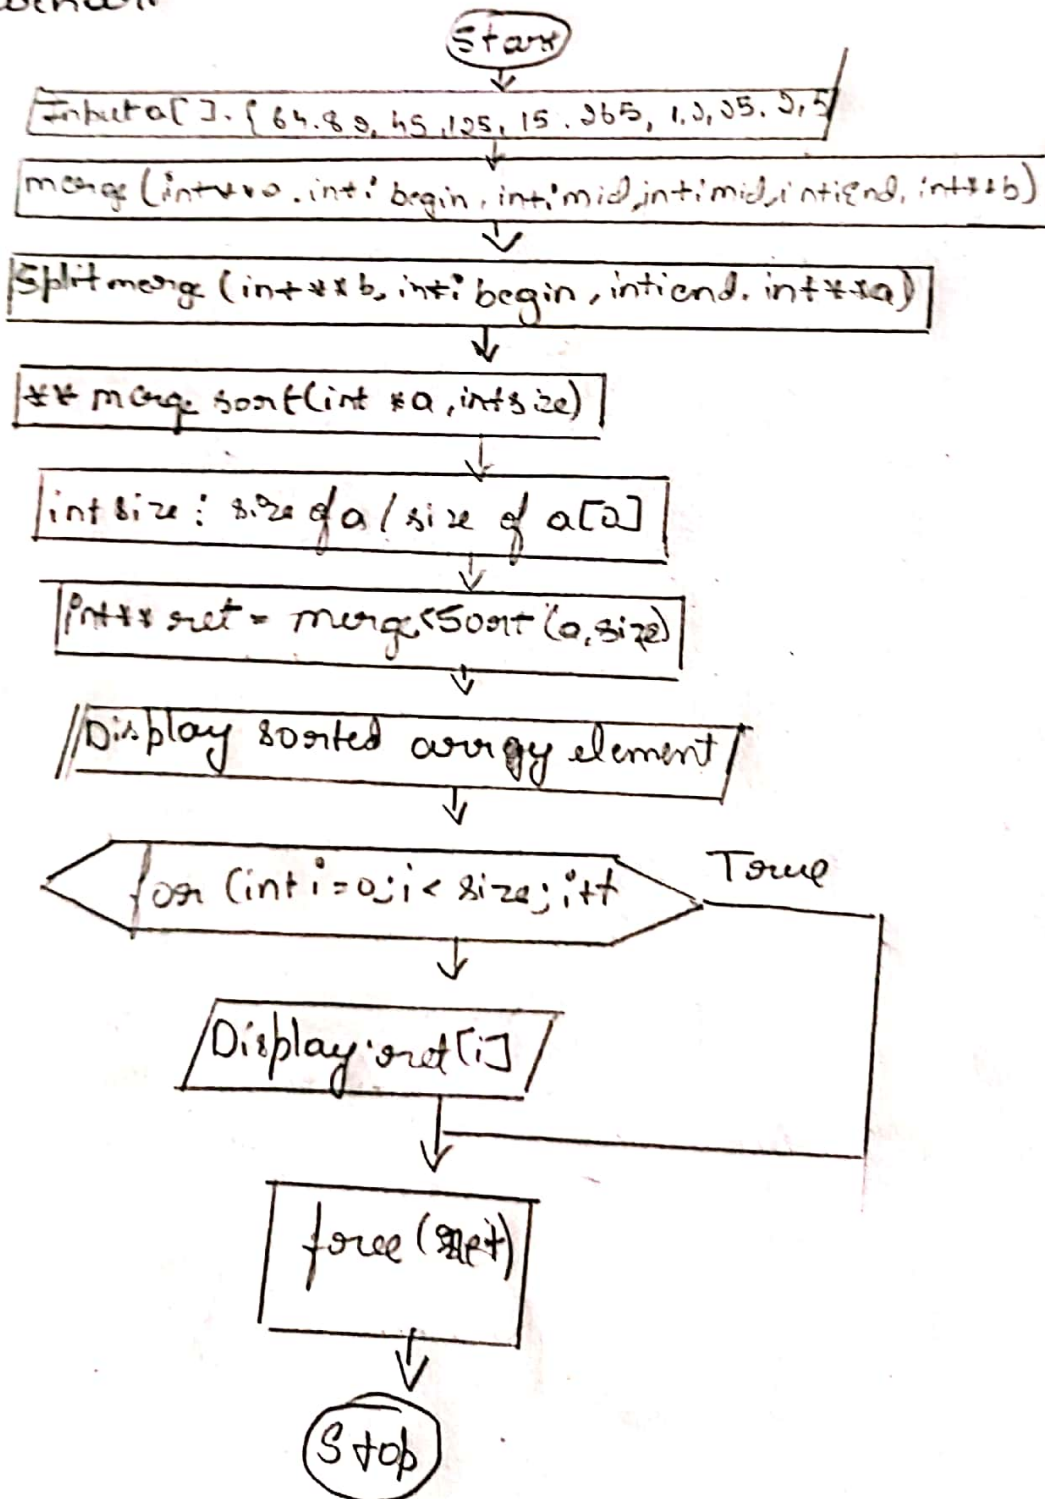 Start
Input a[]. {64.89, 45,125, 15.265, 1,2,35.2,5
merge (int**a.int i begin, int imid,int imid,int iend, int**b)
Split merge (int**b, int i begin, int iend. int**a)
** merge sort(int *a, int size)
int size: size of a / size of a[0]
int** ret = merge<Sort (a,size)
Display sorted arrgy element
for (int i=0;i< size; i++
True
Display:ret[i]
free (ret)
Stop